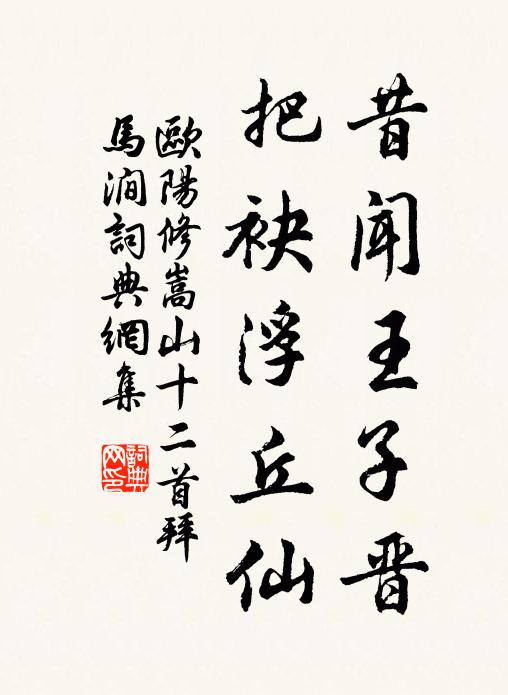 昔聞王子晋
把袂浮丘仙
歐陽修嵩山十二首拜
馬澗詞典網集
詞典网印